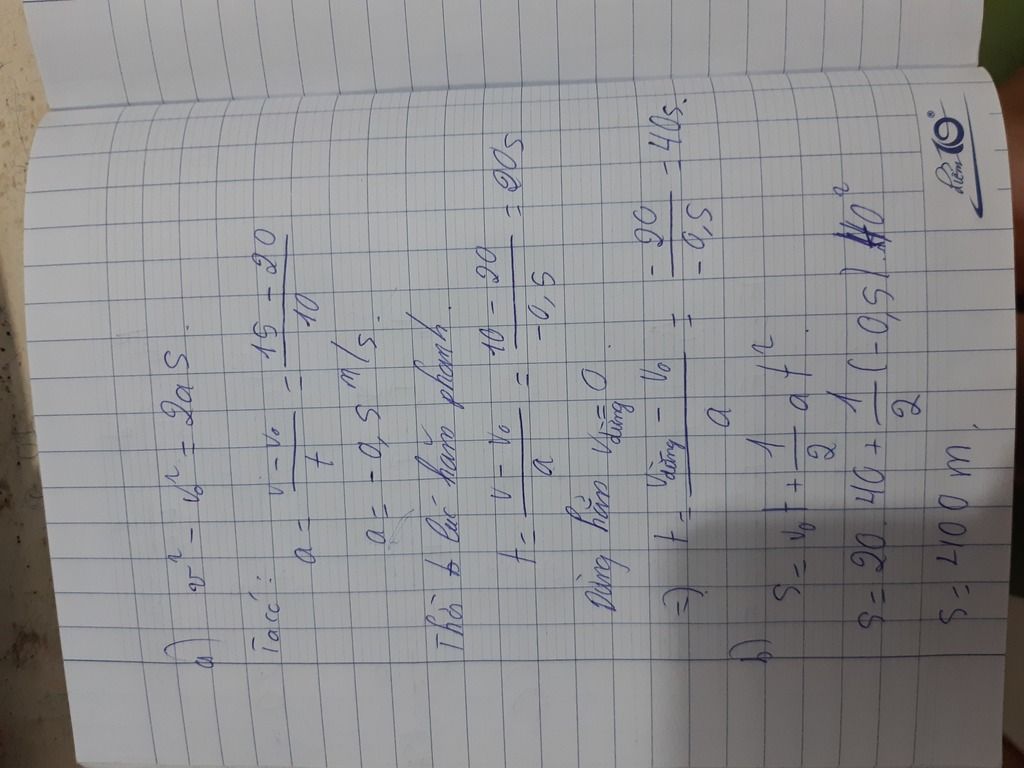 a) v² - v₀² = 2aS
Ta có: a = (v - v₀)/t = (15 - 20)/10
a = -0,5 m/s.
Thời t lúc hãm phanh.
t = (v - v₀)/a = (10 - 20)/(-0,5) = 20s
Dừng hẳn v dừng = 0
=) t = (v dừng - v₀)/a = (-20)/(-0,5) = 40s.
b) S = v₀t + 1/2 at²
S = 20.40 + 1/2 (-0,5).40²
S = 400 m.
điểm 10